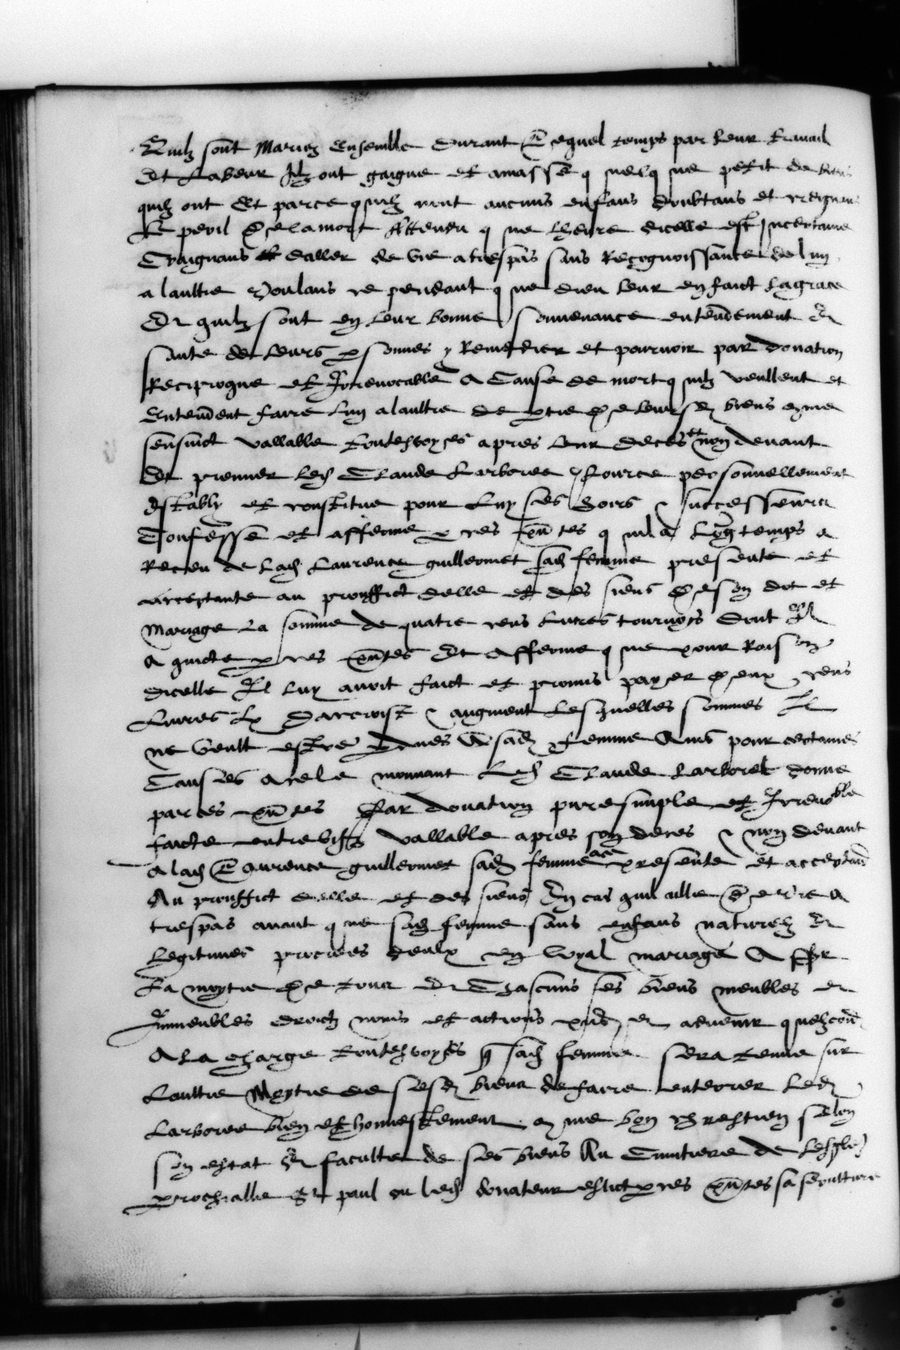 Quilz sont Mariez Ensemble Durant Lequel temps par leur travail
Et Labeur Ilz ont gaigne et amasse quelque petit de biens
quilz ont Et parce quilz nont aucuns enfans doubtans et creignans
Le peril de la mort Attendu que lheure dicelle est Incertaine
Craignans daller de vie a trespas sans Recognoissance de lun
a laultre Voulans ce pendant que dieu leur en faict la grace
Et quilz sont en leur bonne souvenance entendement Et
sante de leurs psonnes y Remedier et pourvoir par donation
Reciproque et Irrevocable A Cause de mort quilz veullent et
Entendent faire Lun a laultre de ptie de leursd biens comme
sensuict vallable toutesvoyes apres leur deces et non devant
Et premier led Claude Larboree source personnellement
Estably et constitue pour Luy ses hoirs & successeurs
Confesse et afferme p ces pntes quil a Long temps a
Receu de lad Laurence guillermet sad femme presente et
acceptante au prouffict delle et des siens de son dot et
Mariage La somme de quatre cens Livres tournoys Dont Il
A quicte p ces pntes Et Afferme que pour Raison
dicelle Il Luy avoit faict et promis payer deux cens
Livres Lx Daccroist & augment Lesquelles sommes Il
ne veult estre sad femme Ains pour certaines
Causes a ce le mouvant Led Claude Larboree donne
par ces pntes Par donation pure simple et Irrevoble
faicte entre vifs vallable apres son deces & non devant
A lad Laurence guillermet sad femme presente et acceptant
Au prouffict delle et des siens En cas quil aille de vie a
trespas avant que sad femme sans enfans naturelz Et
Legitimes procrees deulx en loyal mariage A
La moytie de tous Et Chascuns ses biens meubles et
Immeubles droictz noms et actions pns et advenir quelzconq
A La charge toutesvoyes q sad femme sera tenue sur
Laultre Moytie de sesd biens de faire enterrer Led
Larboree bien et honnestement come bon chrestien selon
son estat Et faculte de ses biens Au Cimitiere de Lesglise
prochialle St paul ou led donateur eslict p ces pntes sa sepulture